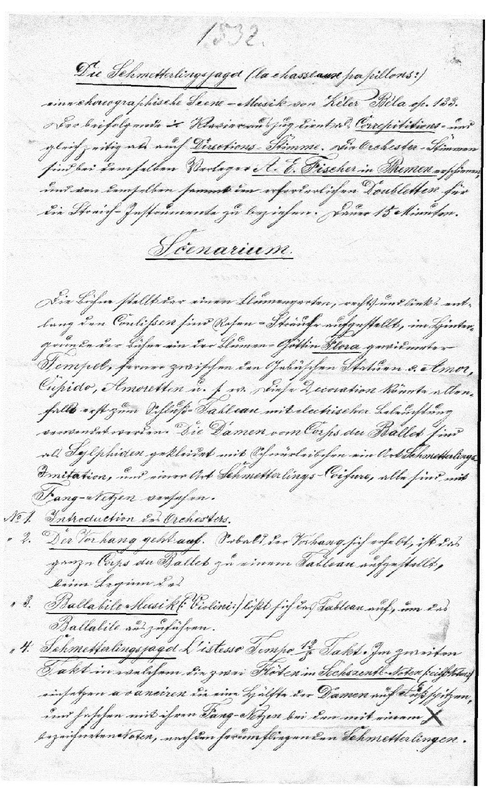 1532.
Die Schmetterlingsjagd (la chasse aux papillons:)
eine choreographische Scene – Musik von Kéler Béla op. 123.
Der beifolgende Klavierauszug dient als Correpititions- und
gleichzeitig als auch Directions-Stimme. Die Orchester-Stimmen
sind bei demselben Verleger A. E. Fischer in Bremen erschienen,
und von demselben sammt den erforderlichen Doubletten für
die Streich-Instrumente zu beziehen. Dauer 15 Minuten.
Scenarium.
Die Bühne stellt dar einen Blumengarten, rechts und links ent-
lang den Coulissen sind Rosen-Sträuche aufgestellt, im Hinter-
grunde der Bühne ein der Blumen-Göttin Flora gewidmeter
Tempel, ferner zwischen den Gebüschen Statuen v. Amor,
Cupido, Amoretten u. s. w. Diese Decoration könnte allen-
falls erst zum Schluss-Tableau mit electrischer Beleuchtung
verwendet werden. Die Damen vom Corps du Ballet sind
als Sylphiden gekleidet mit Schnürleibchen ein Art Schmetterlings
Imitation, und einer Art Schmetterlings-Coifure, alle sind mit
Fang-Netzen versehen.
No 1. Introduction des Orchesters.
" 2. Der Vorhang geht auf. Sobald der Vorhang sich erhebt, ist das
ganze Corps du Ballet zu einem Tableau aufgestellt,
beim Beginn des
" 3. Ballabile Musik (: Violine:) löst sich das Tableau auf, um das
Ballabile auszuführen.
" 4. Schmetterlingsjagd L'istesso Tempo 12/8 Takt. Im zweiten
Takt in welchem die zwei Flöten in Sechszentl-Noten
einsetzen avanciren die eine Hälfte der Damen auf Fußspitzen,
und haschen mit ihren Fang-Netzen bei den mit einem X
bezeichneten Noten, nach den herumfliegenden Schmetterlingen.